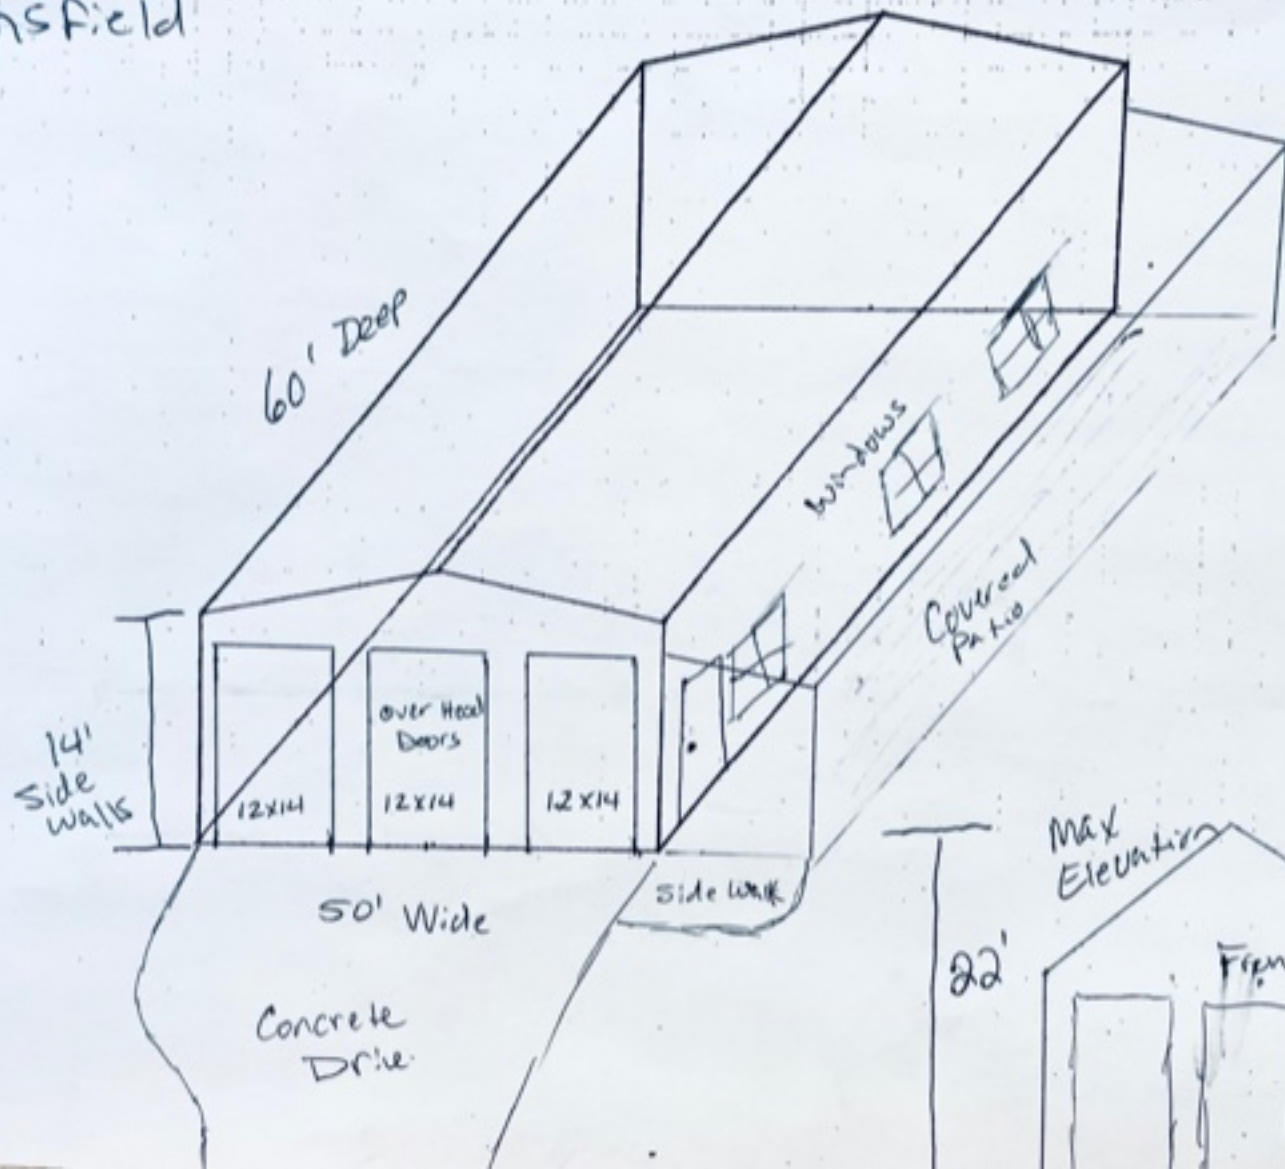 nsfield
60' Deep
windows
Covered
Patio
14'
Side
walls
over Head
Doors
12x14
12x14
12x14
50' Wide
Side Walk
Concrete
Drive
Max
Elevation
22'
Fron